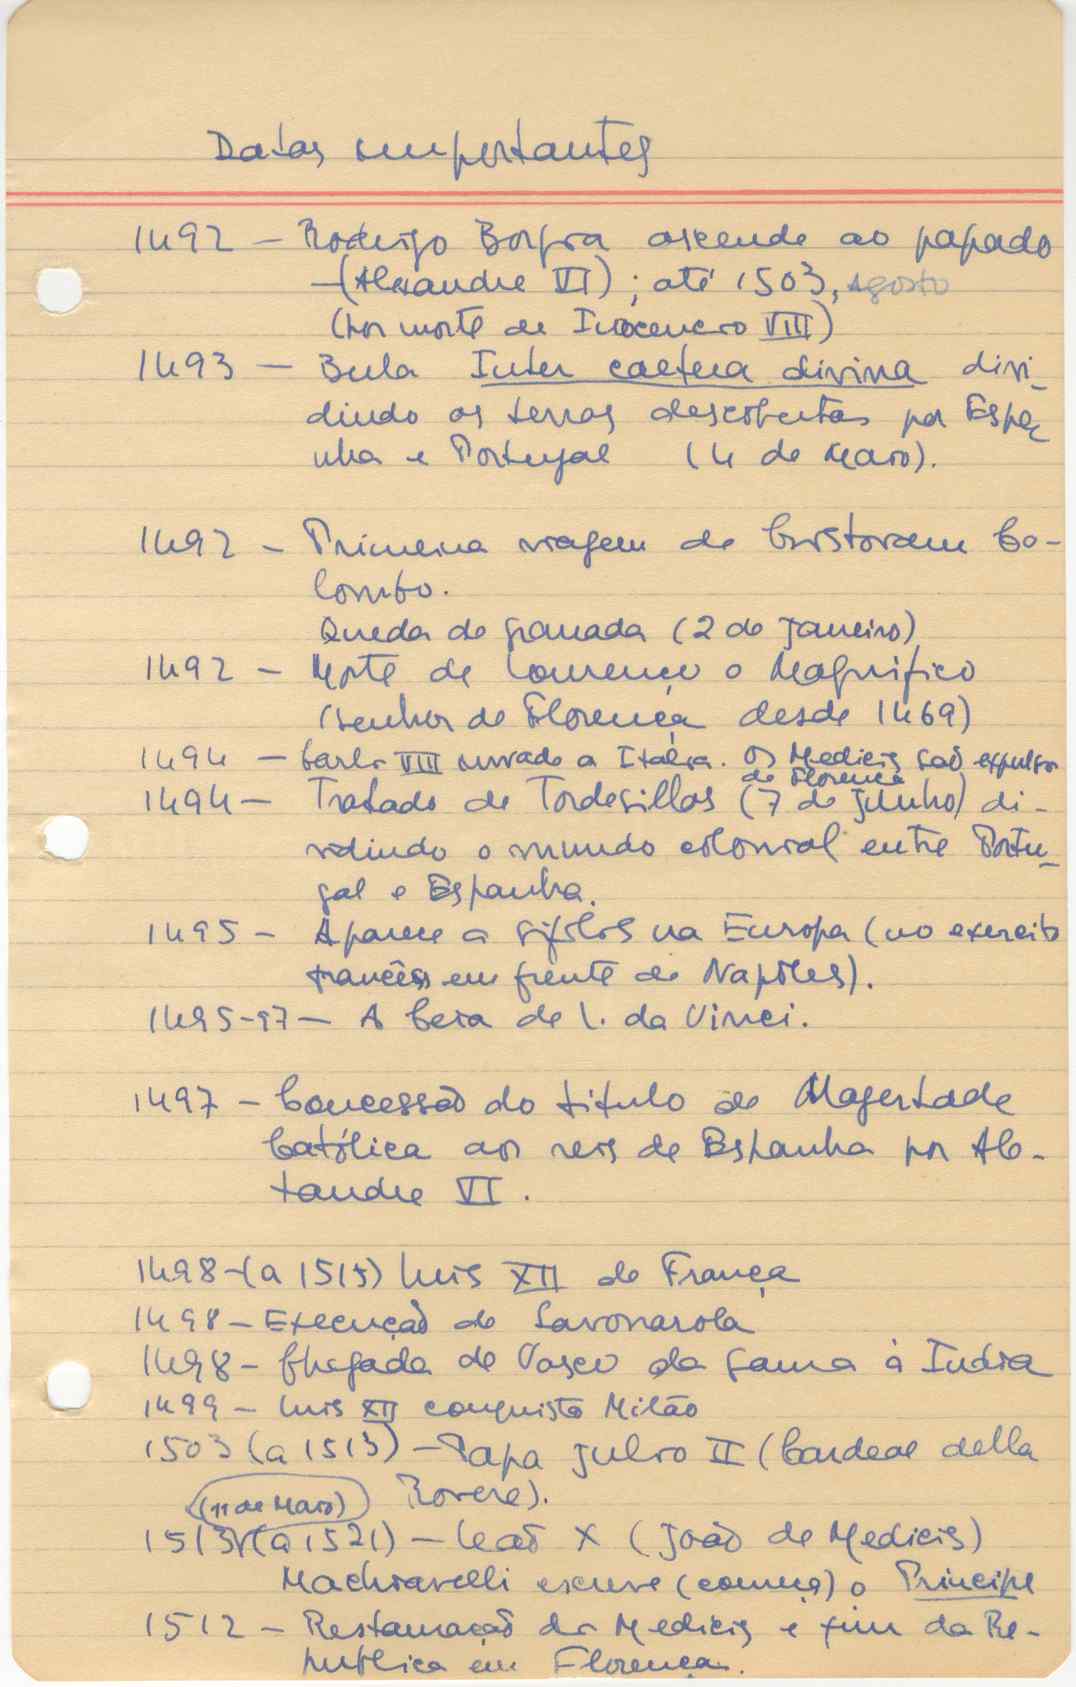 Datas importantes
1492 – Rodrigo Borgia ascende ao papado
–(Alexandre VI) ; até 1503, Agosto
(por morte de Inocencio VIII)
1493 – Bula Inter caetera divina divi-
dindo as terras descobertas por Espa-
nha e Portugal (4 de Maio).
1492 – Primeira viagem de Cristovam Co-
lombo.
Queda de Granada (2 de Janeiro)
1492 – Morte de Lourenço o Magnifico
(senhor de Florença desde 1469)
1494 – Carlos VIII invade a Italia. Os Medicis são expulsos
de Florença
1494 – Tratado de Tordesillas (7 de Junho) di-
vidindo o mundo colonial entre Portu-
gal e Espanha.
1495 – Aparece a sifilis na Europa (no exercito
francês, em frente de Napoles).
1495-97 – A Ceia de L. da Vinci.
1497 – Concessão do titulo de Magestade
Católica aos reis de Espanha por Ale-
xandre VI.
1498 –(a 1515) Luis XII de França
1498 – Execução de Savonarola
1498 – Chegada de Vasco da Gama à India
1499 – Luis XII conquista Milão
1503 (a 1513) – Papa Julio II (Cardeal della
Rovere).
(11 de Março)
1513 (a 1521) – Leão X (João de Medicis)
Machiavelli escreve (começa) o Principe
1512 – Restauração dos Medicis e fim da Re-
publica em Florença.